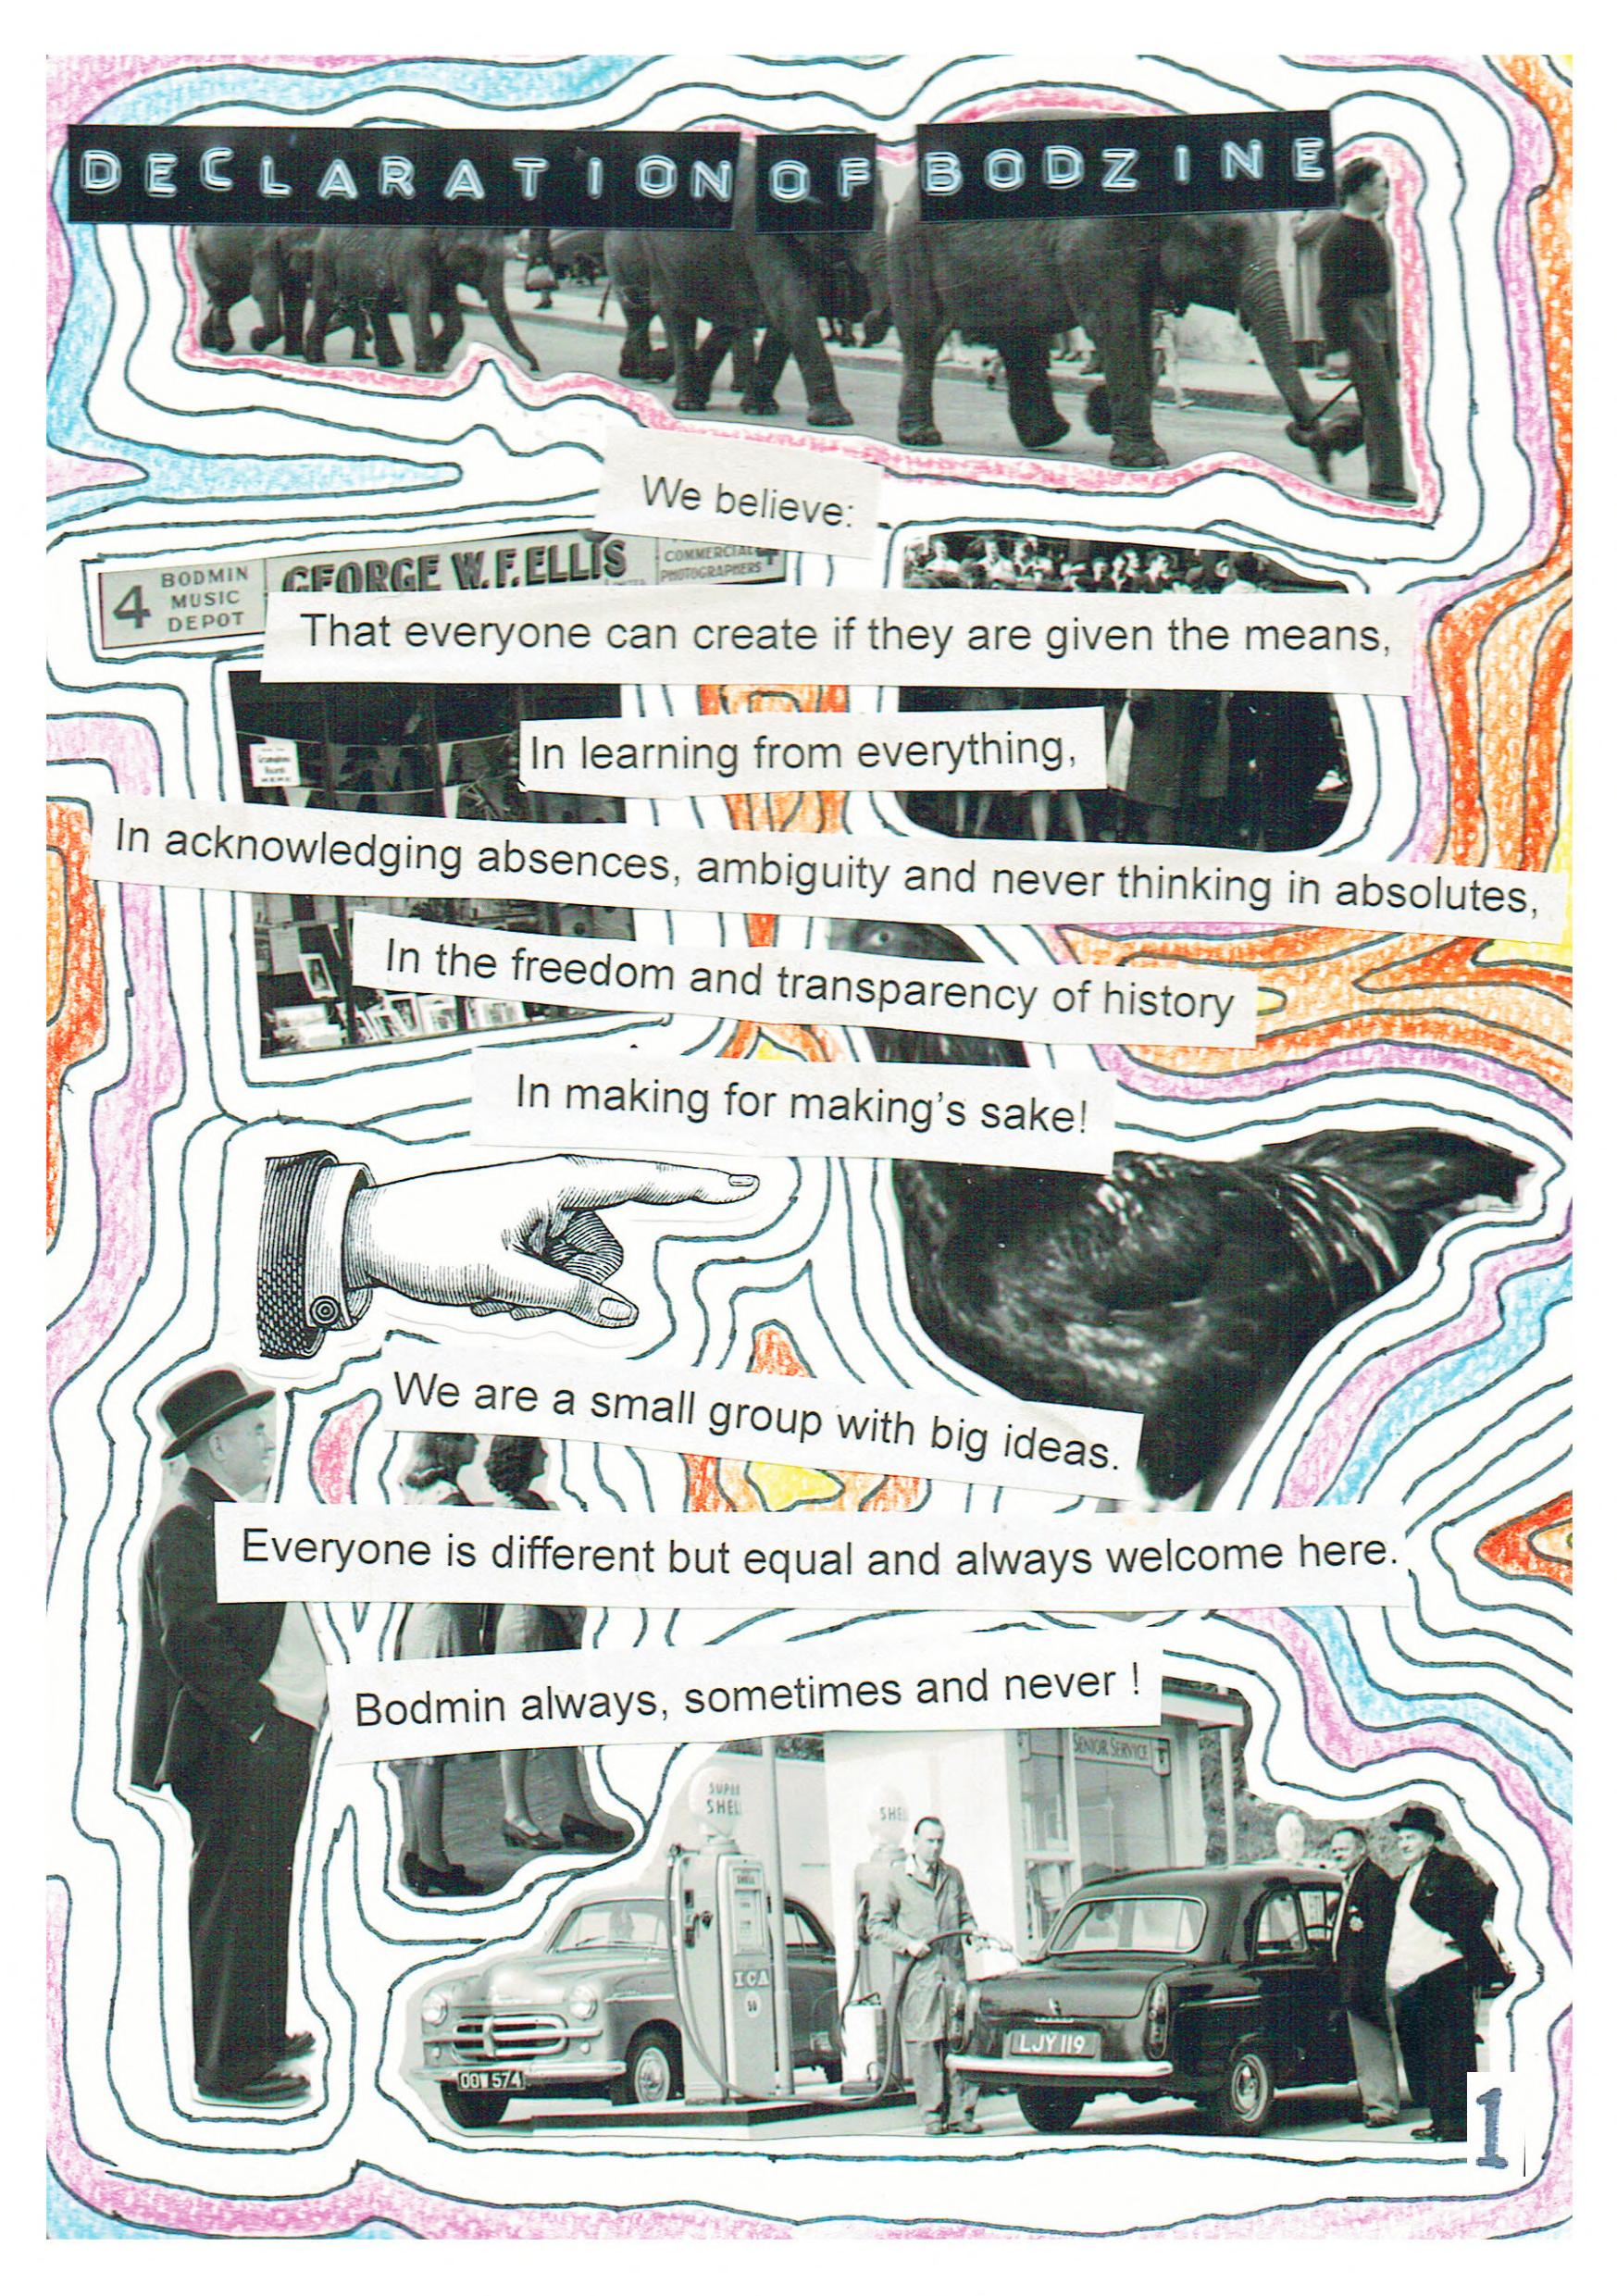 DECLARATION OF BODZINE
We believe:
4 BODMIN MUSIC DEPOT
GEORGE W. F. ELLIS
COMMERCIAL PHOTOGRAPHERS 4
That everyone can create if they are given the means,
In learning from everything,
Gramophone Records
In acknowledging absences, ambiguity and never thinking in absolutes,
In the freedom and transparency of history
In making for making's sake!
We are a small group with big ideas.
Everyone is different but equal and always welcome here.
Bodmin always, sometimes and never !
SENIOR SERVICE
SUPER SHELL
SHELL
ICA
LJY 119
1